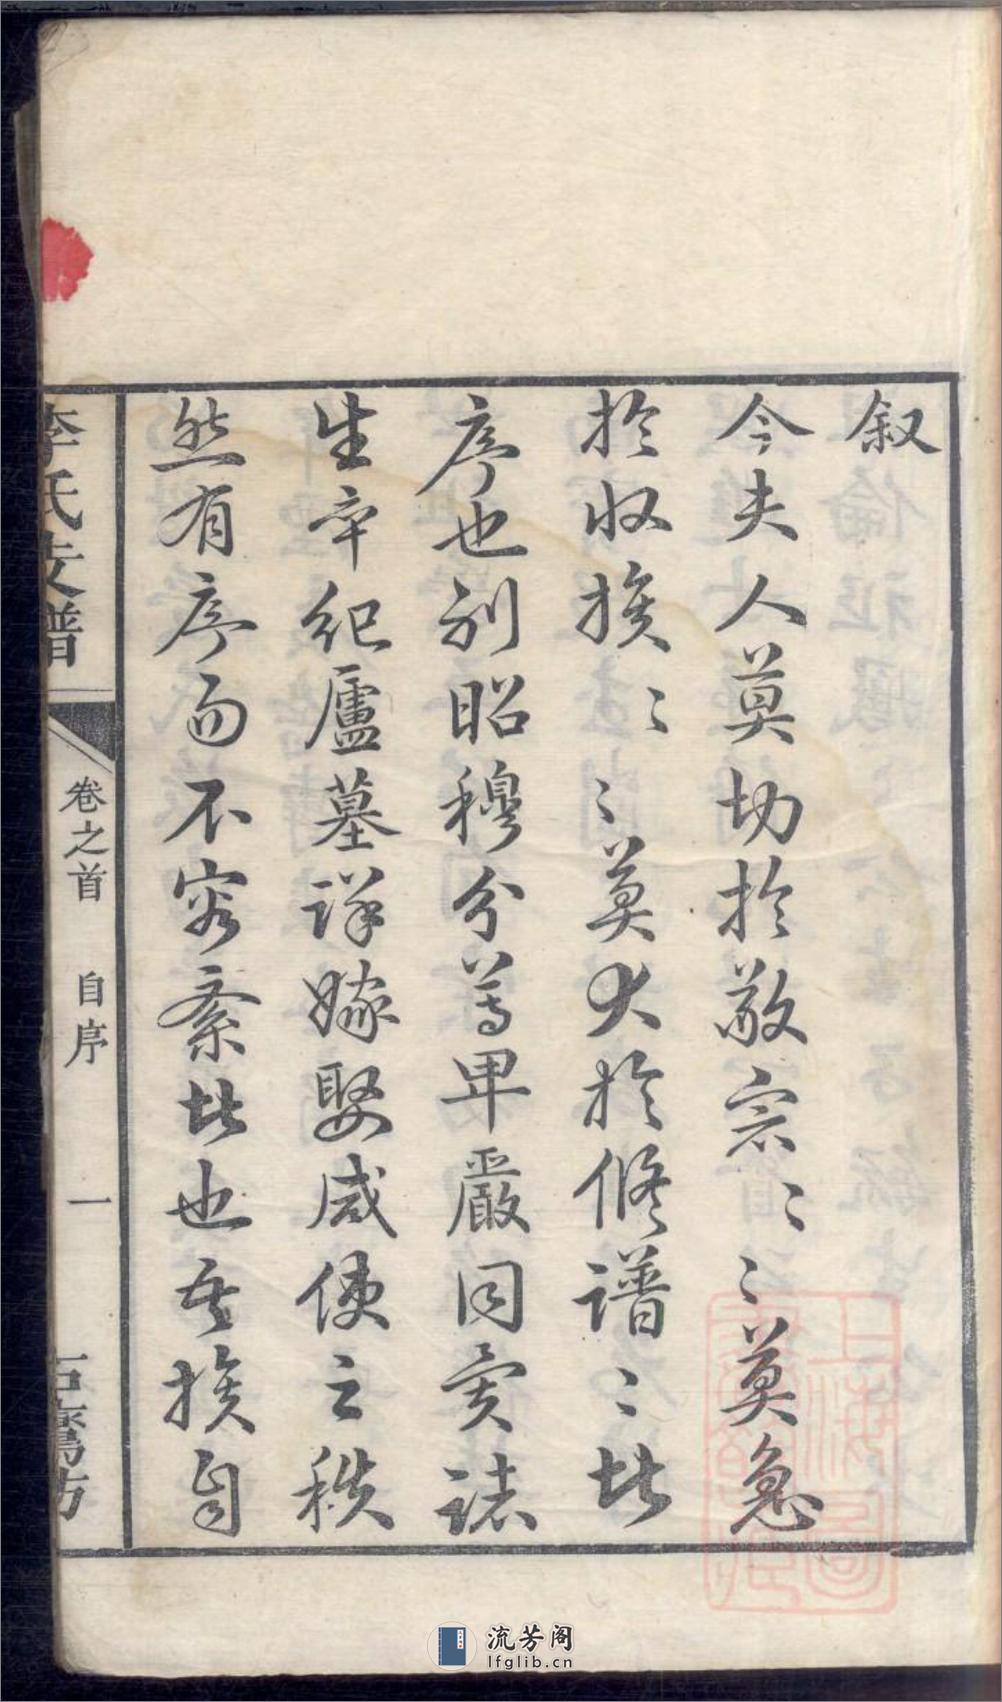 叙
今夫人莫切於敬宗〻〻莫急
於收族〻〻莫大於修譜〻者
序也別昭穆分尊卑嚴同異誌
生卒紀廬墓詳嫁娶咸使之秩
然有序而不容紊者也吾族自
李氏支譜
卷之首 自序 一
上海圖書館藏
流芳阁
lfglib.cn